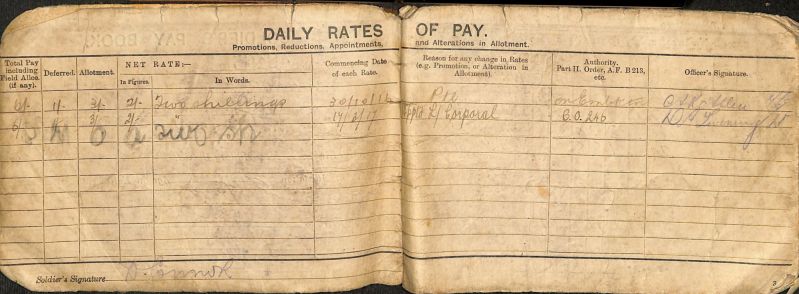 DAILY RATES OF PAY.
Promotions, Reductions, Appointments, and Alterations in Allotment.
Total Pay including Field Allce. (if any).
Deferred.
Allotment.
NET RATE:—
In Figures.
In Words.
Commencing Date of each Rate.
Reason for any change in Rates (e.g. Promotion, or Alteration in Allotment).
Authority, Part II. Order, A.F. B 213, etc.
Officer's Signature.
6/- 1/- 3/- 2/- Two shillings 30/10/16 Pte on Emb
6/- 3/- 2/- " 17/2/17 Apptd L/Corporal C.O. 246
Two Sh
Soldier's Signature
3